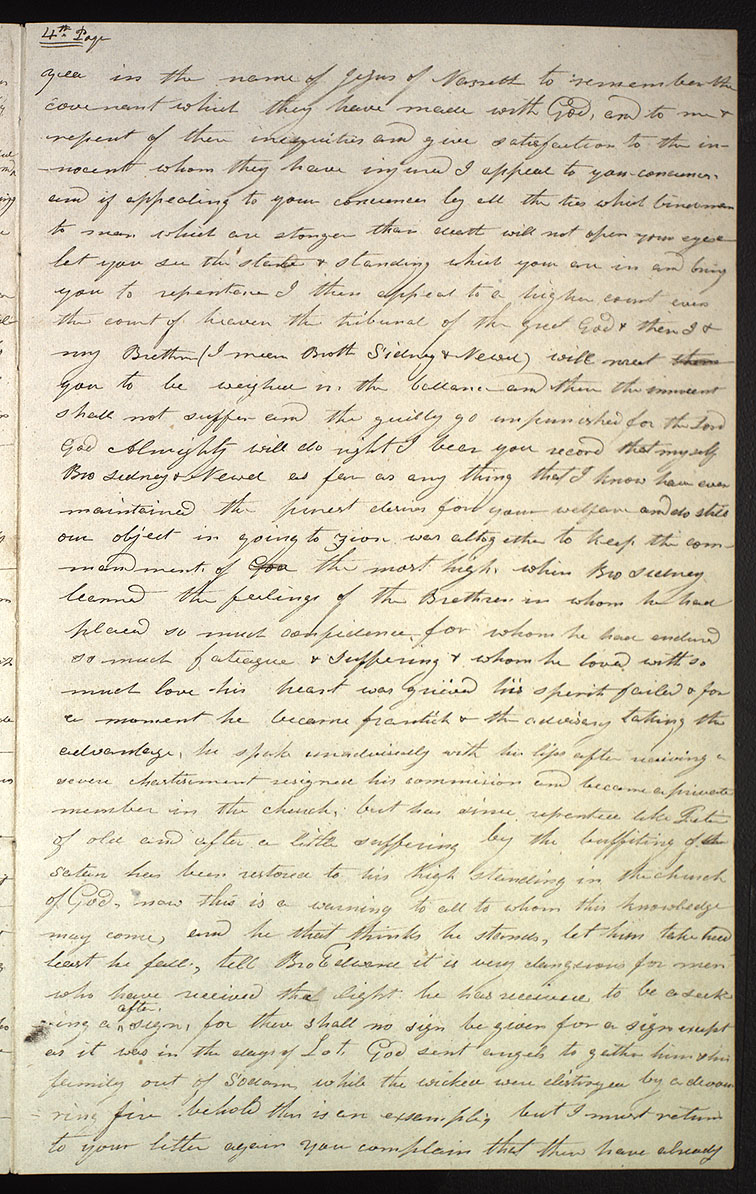 4th Page
yea in the name of Jesus of Nazreth to remember the
covenant which they have made with God, and to me &
repent of there inequities and give satisfaction to the in-
-nocent whom they have injured I appeal to your concience.
and if appealing to your conciences by all the ties which binds man
to man which are stonger than death will not open your eyes &
let you see the state & standing which you are in and bring
you to repentance I then appeal to a higher court even
the court of heaven the tribunal of the great God & there I &
my Brethren (I mean Broth Sidney & Newel) will meet them
you to be weighed in the ballance and there the innocent
shall not suffer and the guilty go unpunished for the Lord
God Almighty will do right I bear you record that myself
Bro Sidney & Newel as far as any thing that I know have ever
maintained the purest desires for your welfare and do still
our object in going to Zion was altogether to keep the com-
mandments of God the most high. when Bro Sidney
learned the feelings of the Brethren in whom he had
placed so much confidence for whom he had endured
so much fateague & suffering & whom he loved with so
much love his heart was grieved his spirits failed & for
a moment he became frantick & the advisary taking the
advantage, he spake unadvisedly with his lips after receiving a
severe chastisement resigned his commision and became a private
member in the church, but has since repented like Peter
of old and after a little suffering by the buffiting of the
Satan has been restored to his high standing in the church
of God, now this is a warning to all to whom this knowledge
may come, and he that thinks he stands, let him take heed
least he fall, tell Bro Edward it is very dangerous for men
who have received the light he has received to be a seek-
-ing a after sign, for there shall no sign be given for a sign except
as it was in the days of Lot. God sent angels to gather him & his
family out of Sodom while the wicked were distroyed by a devou
-ring fire behold this is an exsample, but I must return
to your letter again you complain that there have already